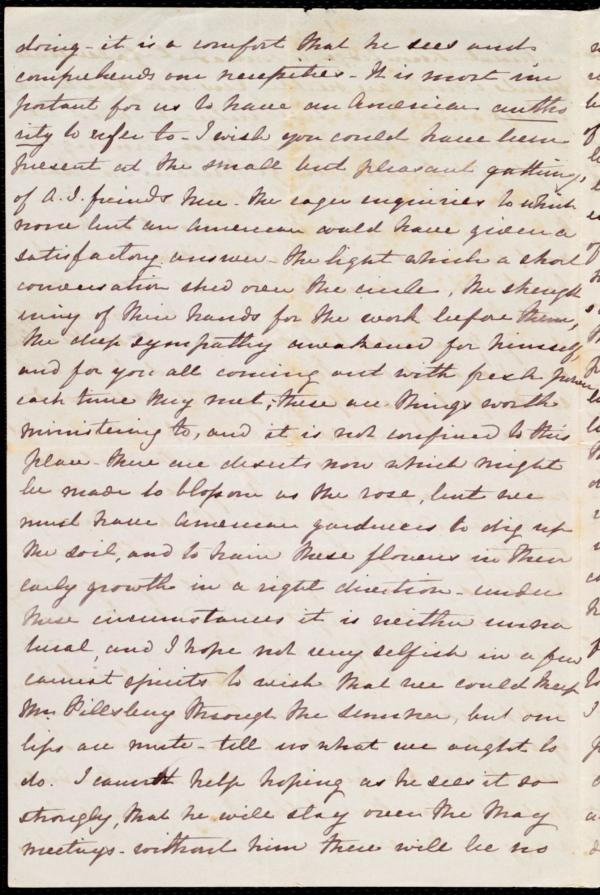 doing - it is a comfort that he sees and
comprehends our necessities - It is most im
portant for us to have an American autho
rity to refer to - I wish you could have been
present at the small but pleasant gatherings
of A.S. friends here - the eager enquiries to which
none but an American could have given a
satisfactory answer - the light which a short
conversation shed over the circle, the strength
ening of their hands for the work before them,
the deep sympathy awakened for himself
and for you all coming out with fresh power
each time they met; these are things worth
ministering to, and it is not confined to this
place - there are deserts now which might
be made to blossom as the rose, but we
must have American gardeners to dig up
the soil, and to train these flowers in their
early growth in a right direction - under
these circumstances it is neither unna
tural, and I hope not very selfish in a few
earnest spirits to wish that we could keep
Mr. Pillsbury through the summer, but our
lips are mute - tell us what we ought to
do. I cannot help hoping as he sees it so
strongly, that he will stay over the May
meetings - without him there will be no